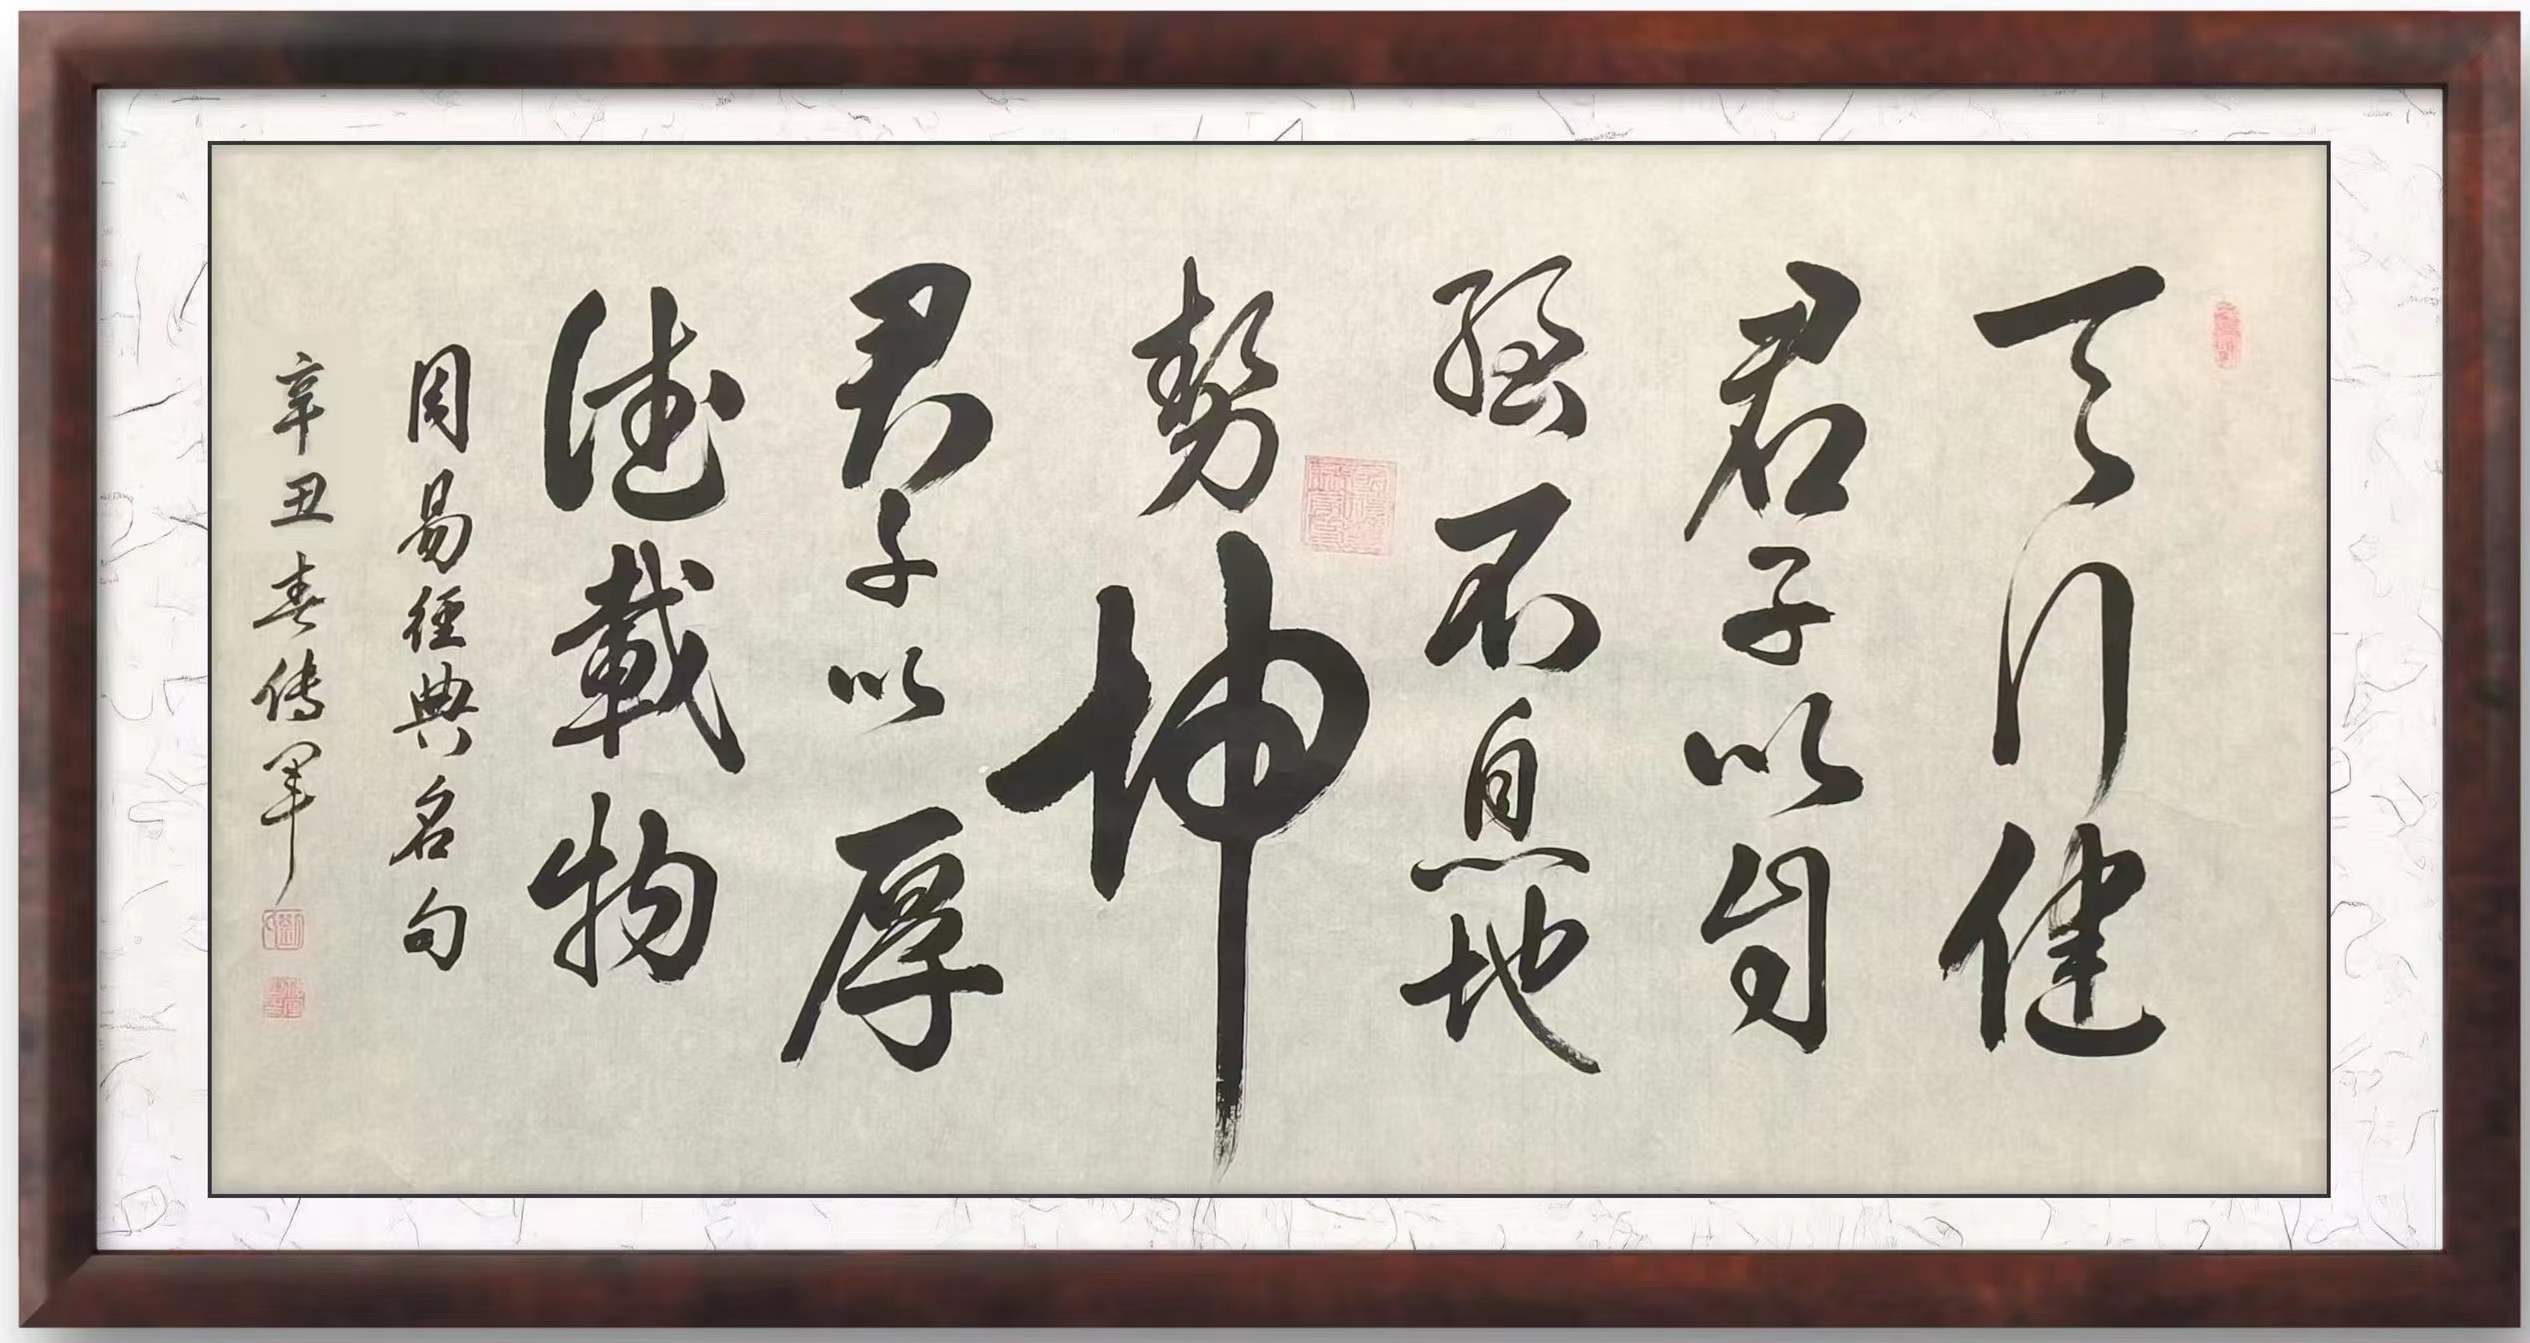 天行健
君子以自
强不息地
勢坤
君子以厚
德載物
周易經典名句
辛丑春傳軍